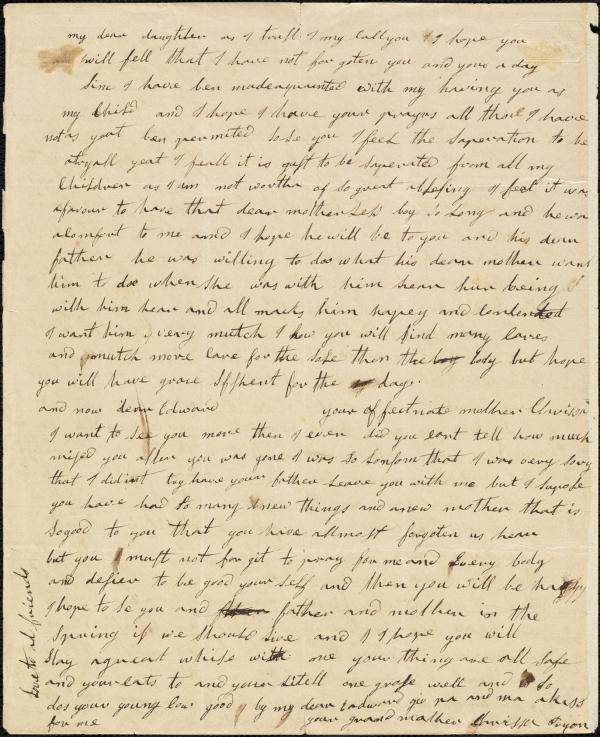 my dear daughter as I trust I my call you I hope you
will fell that I have not forgoten you and yovs a day
Sinc I have ben made aquainted with my having you as
my Child and I hope I have your prayrs all tho I have
not as yeat ben permited to Se you I feel the saperation to be
yeat I feall it is gust to be saperated from all my
Children as I am not worthy of so great a blesing I feel it was
a favour to have that dear motherless boy so long and he was
a comfort to me and I hope he will be to you and his dear
father he was willing to doo what his dear mother want
him to doo when She was with him hear hur being
with him hear and all macks him hapey and contented
I want him very mutch I how you will find many cares
and mutch more care for the sole then the body but hope
you will have grace for the day.
and now dear Edward your afectnate mother Clarissa
I want to See you more then I ever did you cant tell how much
mised you after you was gone I was so lonsom that I was very sory
that I didint try have your father Leave you with me but I supose
you have had so many new things and a new mother that is
so good to you that you have allmost forgoten us hear
but you must not forgit to pray for me and Every body
and desier to be good your self and then you will be happy
I hope to se you and father and mother in the
Spring if we should live and I I hope you will
Stay a great while with one your thing are all safe
and your cats to and your litell one grose well and is so
dos your young low good by my dear Eadward giv pa and ma a kiss
for me your grandmother Clarissa Tryon
Love to al friends